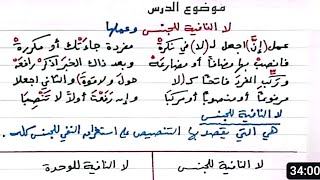 موضوع الدرس
لا النافية للجنس وعملها
عمل (إنَّ) اجعل لـ(لا) في نكرة مفردة جاءتك أو مكررة
فانصب بها مضافًا أو مضارعه وبعد ذاك الخبر اذكر رافعه
وركّب المفرد فاتحًا كـ(لا حول ولا قوة) والثاني اجعلا
مرفوعًا أو منصوبًا أو مركبا وإن رفعت أولًا لا تنصبا
لا النافية للجنس
هي التي يقصد بها التنصيص على استغراق النفي للجنس كله.
لا النافية للجنس لا النافية للوحدة
34:00